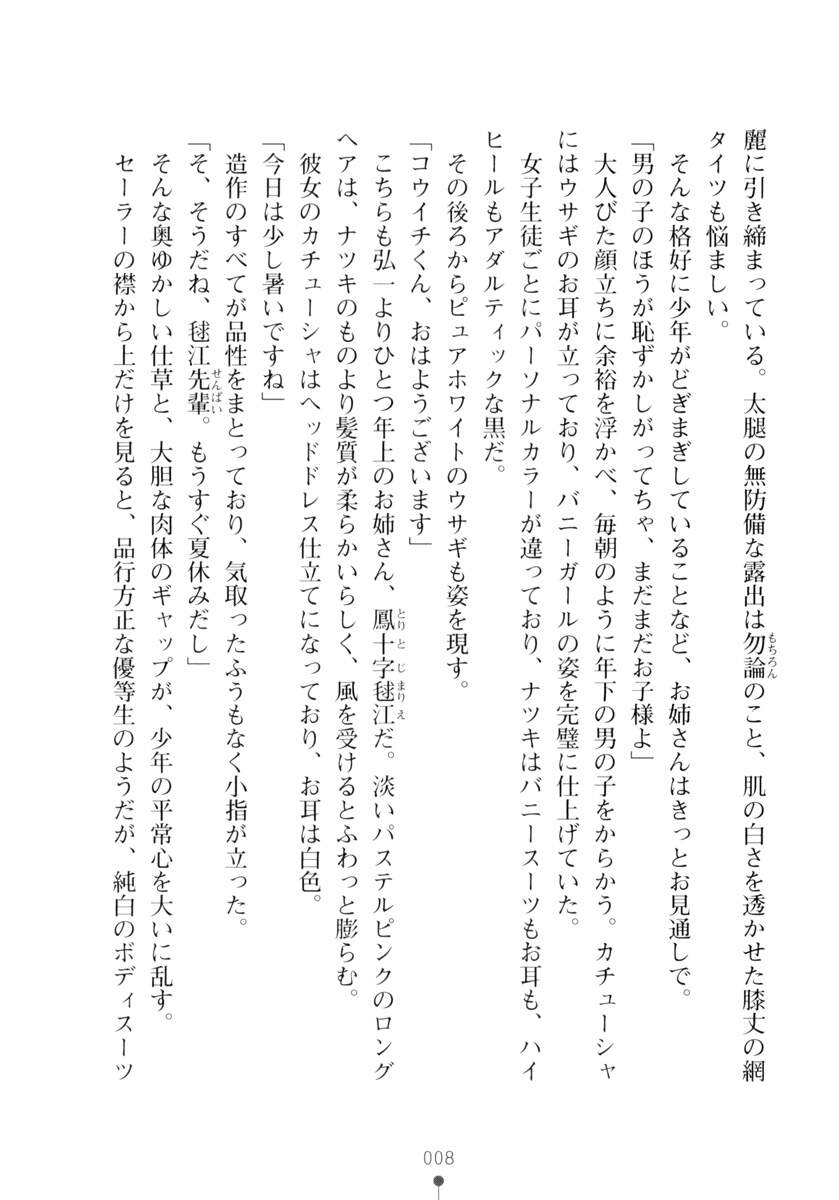 麗に引き締まっている。太腿の無防備な露出は勿論のこと、肌の白さを透かせた膝丈の網
もちろん
タイツも悩ましい。
そんな格好に少年がどぎまぎしていることなど、お姉さんはきっとお見通しで。
「男の子のほうが恥ずかしがってちゃ、まだまだお子様よ」
大人びた顔立ちに余裕を浮かべ、毎朝のように年下の男の子をからかう。カチューシャ
にはウサギのお耳が立っており、バニーガールの姿を完璧に仕上げていた。
女子生徒ごとにパーソナルカラーが違っており、ナツキはバニースーツもお耳も、ハイ
ヒールもアダルティックな黒だ。
その後ろからピュアホワイトのウサギも姿を現す。
「コウイチくん、おはようございます」
こちらも弘一よりひとつ年上のお姉さん、鳳十字毬江だ。淡いパステルピンクのロング
とりとじまりえ
ヘアは、ナツキのものより髪質が柔らかいらしく、風を受けるとふわっと膨らむ。
彼女のカチューシャはヘッドドレス仕立てになっており、お耳は白色。
「今日は少し暑いですね」
造作のすべてが品性をまとっており、気取ったふうもなく小指が立った。
「そ、そうだね、毬江先輩。もうすぐ夏休みだし」
せんぱい
そんな奥ゆかしい仕草と、大胆な肉体のギャップが、少年の平常心を大いに乱す。
セーラーの襟から上だけを見ると、品行方正な優等生のようだが、純白のボディスーツ
008